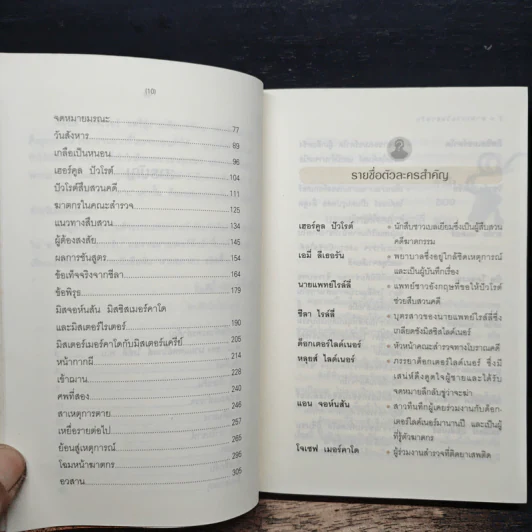 จดหมายมรณะ 77
วันสังหาร 89
เกลือเป็นหนอน 96
เฮอร์คูล ปัวโรต์ 104
ปัวโรต์สืบสวนคดี 111
ฆาตกรในคณะสำรวจ 125
แนวทางสืบสวน 134
ผู้ต้องสงสัย 145
ผลการชันสูตร 154
ข้อเท็จจริงจากชีลา 164
ข้อพิรุธ 179
มิสจอห์นสัน มิสซิสเมอร์คาโด
และมิสเตอร์ไรเตอร์ 190
มิสเตอร์เมอร์คาโดกับมิสเตอร์แครีย์ 205
หน้ากากผี 214
เข้าฌาน 228
ศพที่สอง 246
สาเหตุการตาย 257
เหยื่อรายต่อไป 265
ย้อนสู่เหตุการณ์
โฉมหน้าฆาตกร 295
อวสาน 305
รายชื่อตัวละครสำคัญ
เฮอร์คูล ปัวโรต์ • นักสืบชาวเบลเยียมซึ่งเป็นผู้สืบสวน
คดีฆาตกรรม
เอมี่ ลีเธอรัน • พยาบาลซึ่งอยู่ใกล้ชิดเหตุการณ์
และเป็นผู้บันทึกเรื่อง
นายแพทย์ไรลีย์ • แพทย์ชาวอังกฤษที่ขอให้ปัวโรต์
ช่วยสืบสวนคดี
ชีลา ไรลีย์ • บุตรสาวของนายแพทย์ไรลีย์ซึ่ง
เกลียดชังมิสซิสไลด์เนอร์
ด็อกเตอร์ไลด์เนอร์ • หัวหน้าคณะสำรวจทางโบราณคดี
หลุยส์ ไลด์เนอร์ • ภรรยาด็อกเตอร์ไลด์เนอร์ ซึ่งมี
เสน่ห์ดึงดูดใจผู้ชายและได้รับ
จดหมายลึกลับขู่ว่าจะฆ่า
แอน จอห์นสัน • สาวทึนทึกผู้เคยร่วมงานกับด็อก-
เตอร์ไลด์เนอร์มานานปี และเป็น
ผู้ที่รู้ตัวฆาตกร
โจเซฟ เมอร์คาโด • ผู้ร่วมงานสำรวจที่ติดยาเสพติด